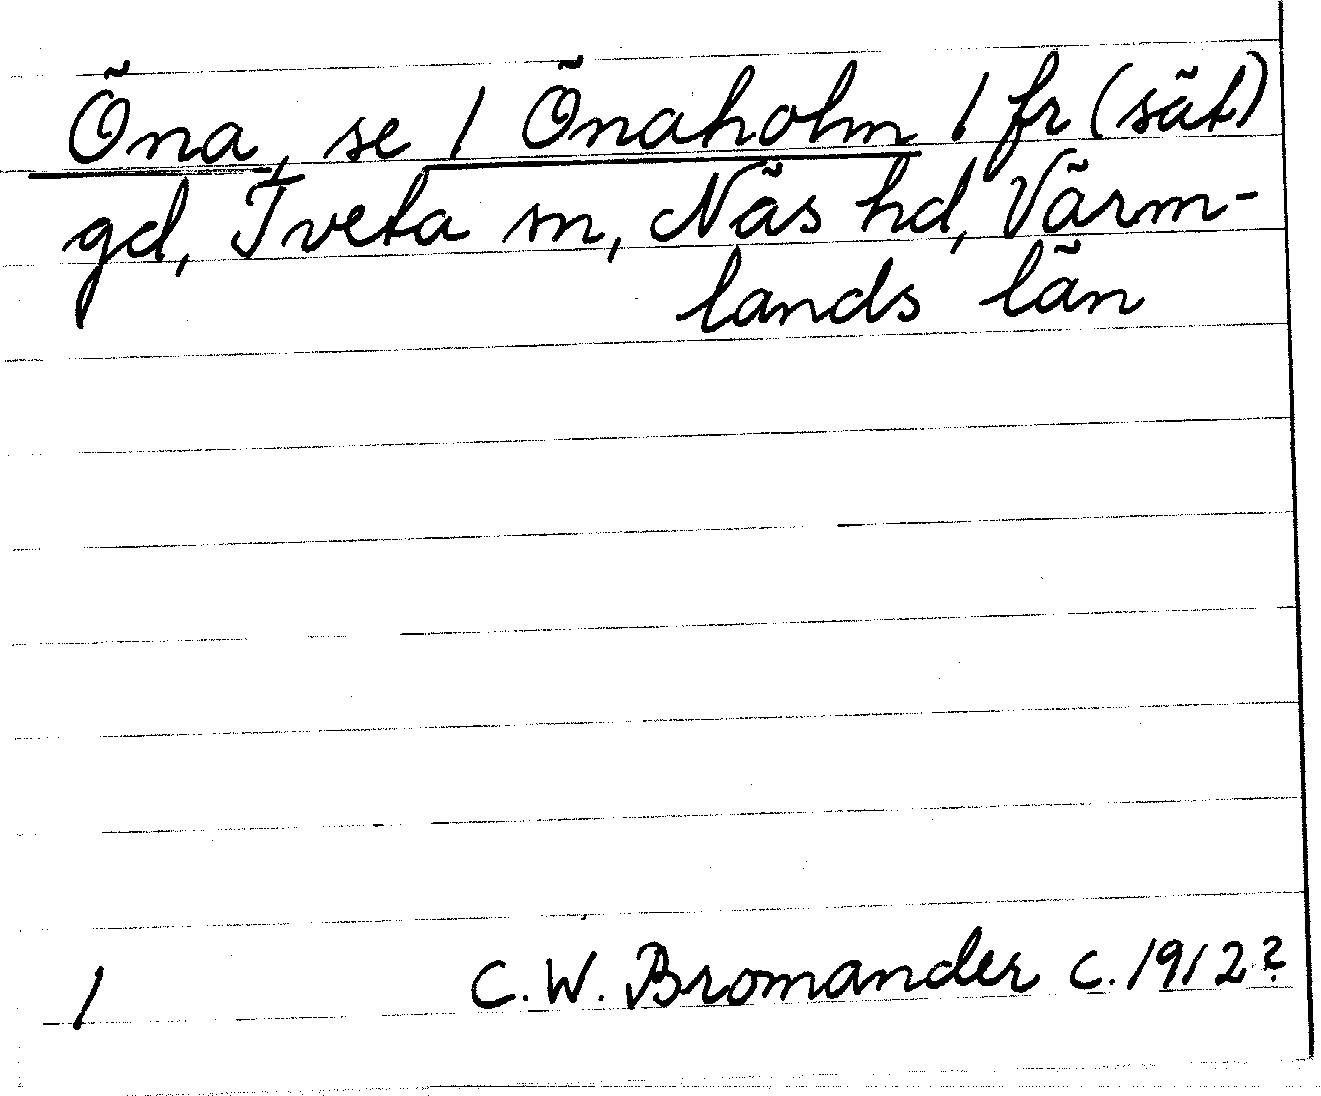 Öna, se / Önaholm / fr (sät)
gd, Tveta sn, Näs hd, Värm-
lands län
/ C. W. Bromander c. 1912?